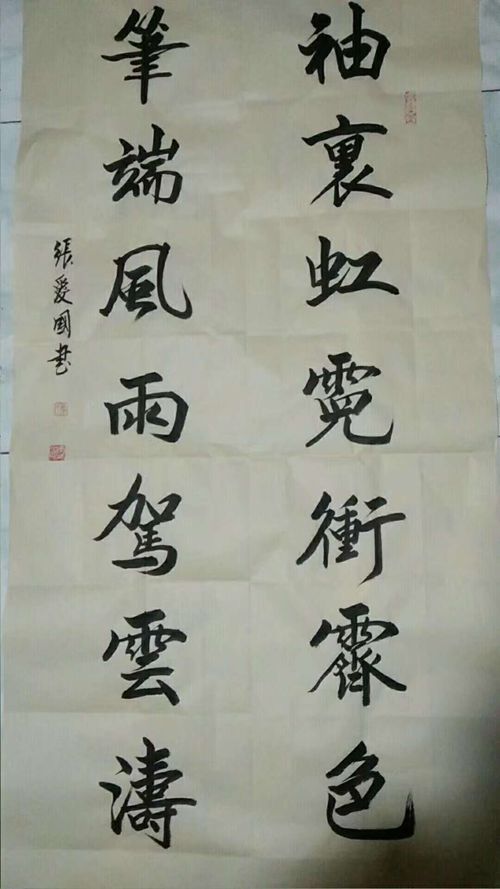 袖裏虹霓衝霽色
筆端風雨駕雲濤
張愛國書